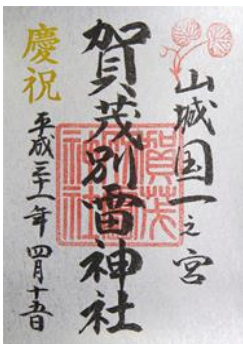 山城国一之宮
賀茂別雷神社
慶祝
平成三十一年 四月十五日